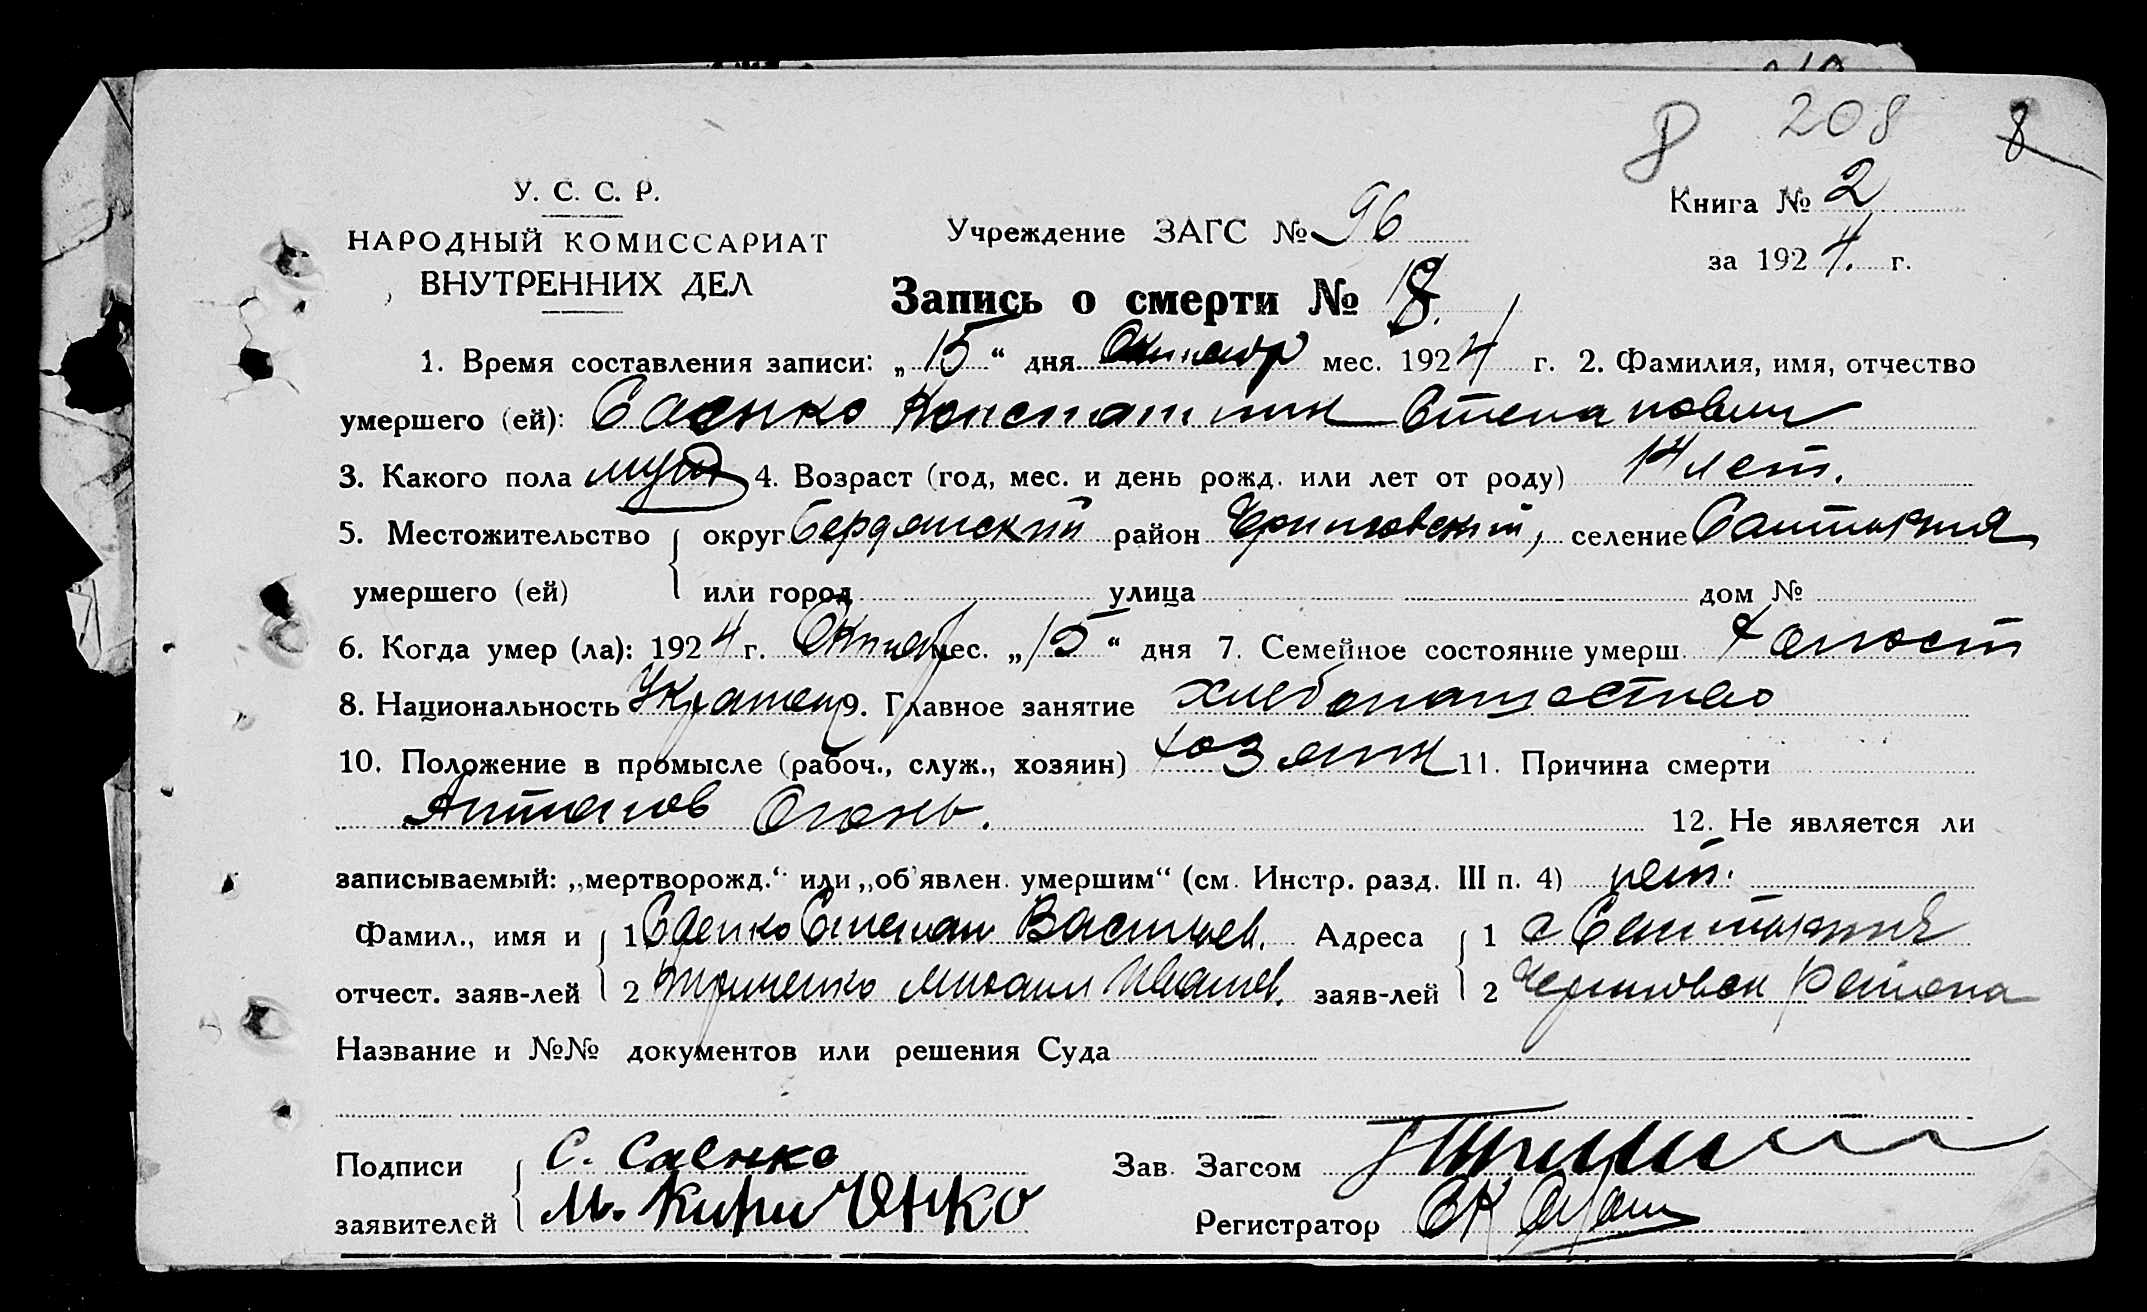 208 8
У. С. С. Р.
НАРОДНЫЙ КОМИССАРИАТ
ВНУТРЕННИХ ДЕЛ
Учреждение ЗАГС № 96
Книга № 2
за 1924. г.
Запись о смерти № 18.
1. Время составления записи: „15“ дня Октябр мес. 1924 г. 2. Фамилия, имя, отчество
умершего (ей): Саенко Константин Степанович
3. Какого пола муж 4. Возраст (год, мес. и день рожд. или лет от роду) 14 лет.
5. Местожительство округ Бердянский район Черниговский, селение Салтыкия
умершего (ей) или город улица дом №
6. Когда умер (ла): 1924 г. Октябр мес. „15“ дня 7. Семейное состояние умерш. холост
8. Национальность Украинец 9. Главное занятие хлебопашество
10. Положение в промысле (рабоч., служ., хозяин) хозяин 11. Причина смерти
Антонов Огонь. 12. Не является ли
записываемый: „мертворожд.“ или „об'явлен. умершим“ (см. Инстр. разд. III п. 4) нет.
Фамил., имя и 1 Саенко Степан Васильев. Адреса 1 с Салтыкия
отчест. заяв-лей 2 Кириченко Михаил Иванов. заяв-лей 2 Черниговск района
Название и №№ документов или решения Суда
Подписи С. Саенко Зав. Загсом
заявителей М. Кириченко Регистратор